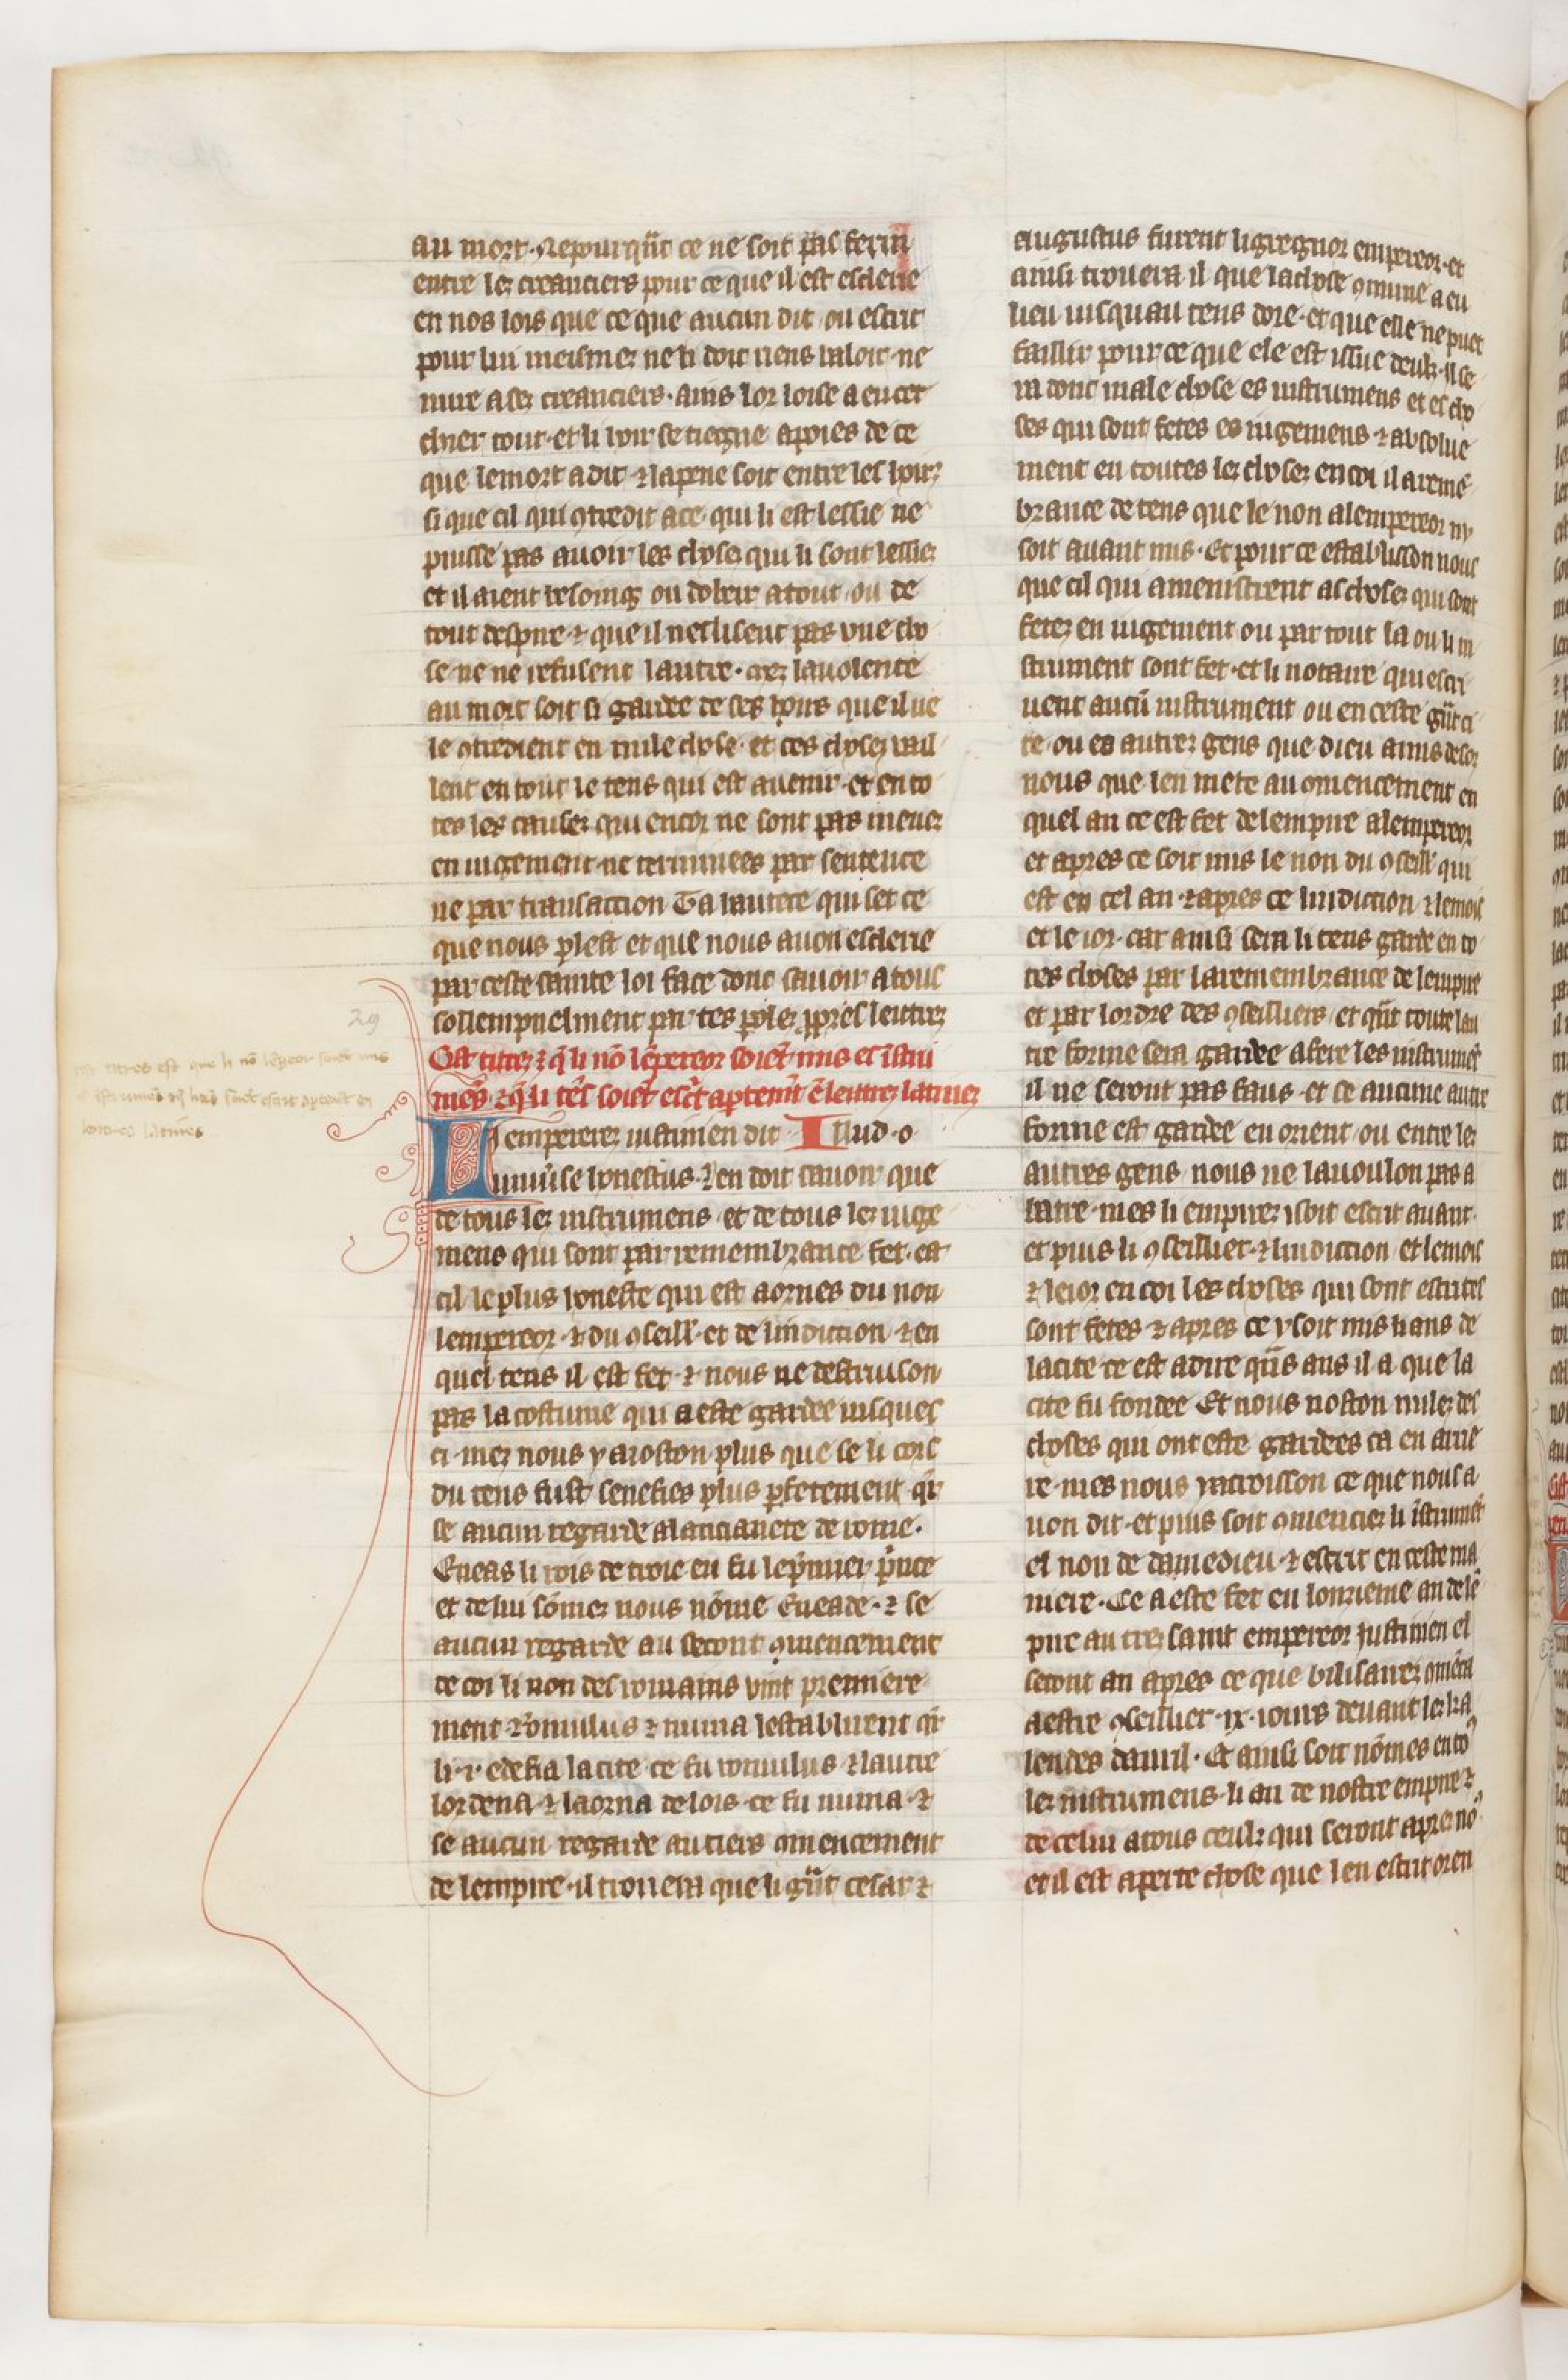 au mort. Nepourqͣnt ce ne soit pas ferm
entre lez creanciers pour ce que il est esclerie
en nos lois que ce que aucun dit ou escrit
pour lui meismez ne li doit riens valoir ne
nuire a sez creanciers. ains lor loise a encer
chier tout. et li hoir se tiegne apoies de ce
que le mort a dit ⁊ la pene soit entre les hoirz
si que cil qui ꝯtredit a ce qui li est lessie ne
puisse pas avoir les chosez qui li sont lessiez
et il aient besoingz ou dobeir a tout ou de
tout despire ⁊ que il neslisent pas vne cho
se ne ne refusent lautre. mez la volente
au mort soit si gardee de ses hoirs que il ne
le ꝯtredient en nule chose. et ces chosez vail
lent en tout le tens qui est avenir. et en to
tes les causez qui encor ne sont pas menez
en iugement ne terminees par sentence
ne par transaction Ta hautece qui set ce
que nous plest et que nous auon esclerie
par ceste sainte loi face donc sauoir a touz
sollempnelment par tes ꝓpres lettrez
Cist titrez ⁊ q̃ li nõ lẽpereor soiẽt mis es ĩstru
mẽs. ⁊ q̃ li tẽs soiẽt escͥt apertemẽt ẽ lettrez latinez
Li emperere iustinien dit Illud. o
mniuse honestius. Len doit sauoir que
de tous lez instrumens et de tous lez iuge
mens qui sont par remembrance fet. est
cil le plus honeste qui est aornes du non
lempereor ⁊ du ꝯseill et de lindiction ⁊ en
quel tens il est fet. ⁊ nous ne destruison
pas la costume qui a este gardee iusques
ci. mez nous y aioston plus que se li cors
du tens fust senefies plus ꝑfetement. qͣr
se aucun regarde a lancianete de rome.
Eneas li rois de troie en fu le pͥmier pͥnce
et de lui sõmez nous nõme Eneade. ⁊ se
aucun regarde au secont ꝯmencement
de coi li non des romains vint premiere
ment romulus ⁊ numa lestablirent qͣr
li .i. edefia la cite ce fu romulus ⁊ lautre
lordena ⁊ laorna de lois ce fu numa. ⁊
se aucun regarde au tiers ꝯmencement
de lempire. il trouera que li gͣnt cesar ⁊
augustus furent li gregnor empereor. et
ainsi trouera il que la chose ꝯmune a eu
lieu iusquau tens dore. et que elle ne puet
faillir pour ce que ele est issue deulz. Il se
ra donc male chose es instrumens et es cho
ses qui sont fetes es iugemens ⁊ absolue
ment en toutes lez chosez en coi il a remẽ
brance de tens que le non a lempereor ny
soit auant mis. Et pour ce establisson nous
que cil qui amenistrent as chosez qui sont
fetez en iugement ou par tout la ou li in
strument sont fet. et li notaire qui escri
uent aucũ instrument ou en ceste gͣnt ci
te. ou es autrez gens que dieu a mis desoz
nous que len mete au ꝯmencement en
quel an ce est fet de lempire a lempereor
et apres ce soit mis le non du ꝯseill qui
est en cel an. ⁊ apres ce lindiction ⁊ le mois
et le ior. car ainsi sera li tens garde en to
tes choses par la remembrance de lempire
et par lordre des ꝯseilliers. et qͣnt toute lau
tre forme sera gardee a fere les instrumẽs
il ne seront pas faus. et se aucune autre
forme est gardee en orient ou entre lez
autres gens nous ne la uoulon pas a
batre. mes li empirez i soit escrit auant.
et puis li ꝯseillier. ⁊ lindiction et le mois
⁊ le ior en coi lez choses qui sont escrites
sont fetes ⁊ apres ce y soit mis li ans de
la cite ce est a dire qͣns ans il a que la
cite fu fondee Et nous noston nulez des
choses qui ont este gardees ca en arrie
re. mes nous i acroisson ce que nous a
uon dit. et puis soit ꝯmenciez li ĩstrumẽs
el non de damedieu ⁊ escrit en ceste ma
niere. Ce a este fet en lonzieme an de lẽ
pire au trez saint empereor Justinien el
secont an apres ce que bilisairez ꝯmẽca
a estre ꝯseillier. ix. iours deuant lez ka
lendes dauril. Et ainsi soit nõmes en toꝰ
lez instrumens. li an de nostre empire ⁊
de celui a tous ceulz qui seront aprez noꝰ.
et il est aperte chose que len escrit oren
29
titres est que li nõ lẽpereor soiẽt mis